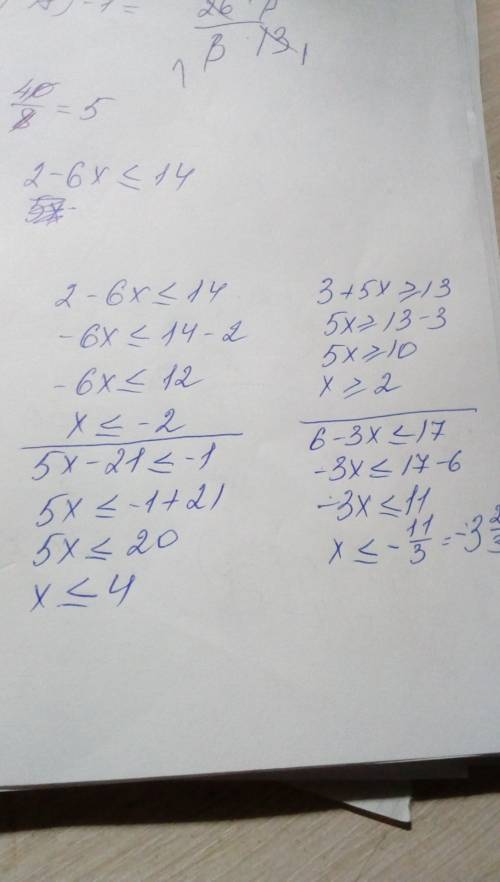 26
40/8 = 5
2 - 6x ≤ 14
2 - 6x ≤ 14
-6x ≤ 14 - 2
-6x ≤ 12
x ≤ -2
5x - 21 ≤ -1
5x ≤ -1 + 21
5x ≤ 20
x ≤ 4
3 + 5x ≥ 13
5x ≥ 13 - 3
5x ≥ 10
x ≥ 2
6 - 3x ≤ 17
-3x ≤ 17 - 6
-3x ≤ 11
x ≤ -11/3 = -3 2/3